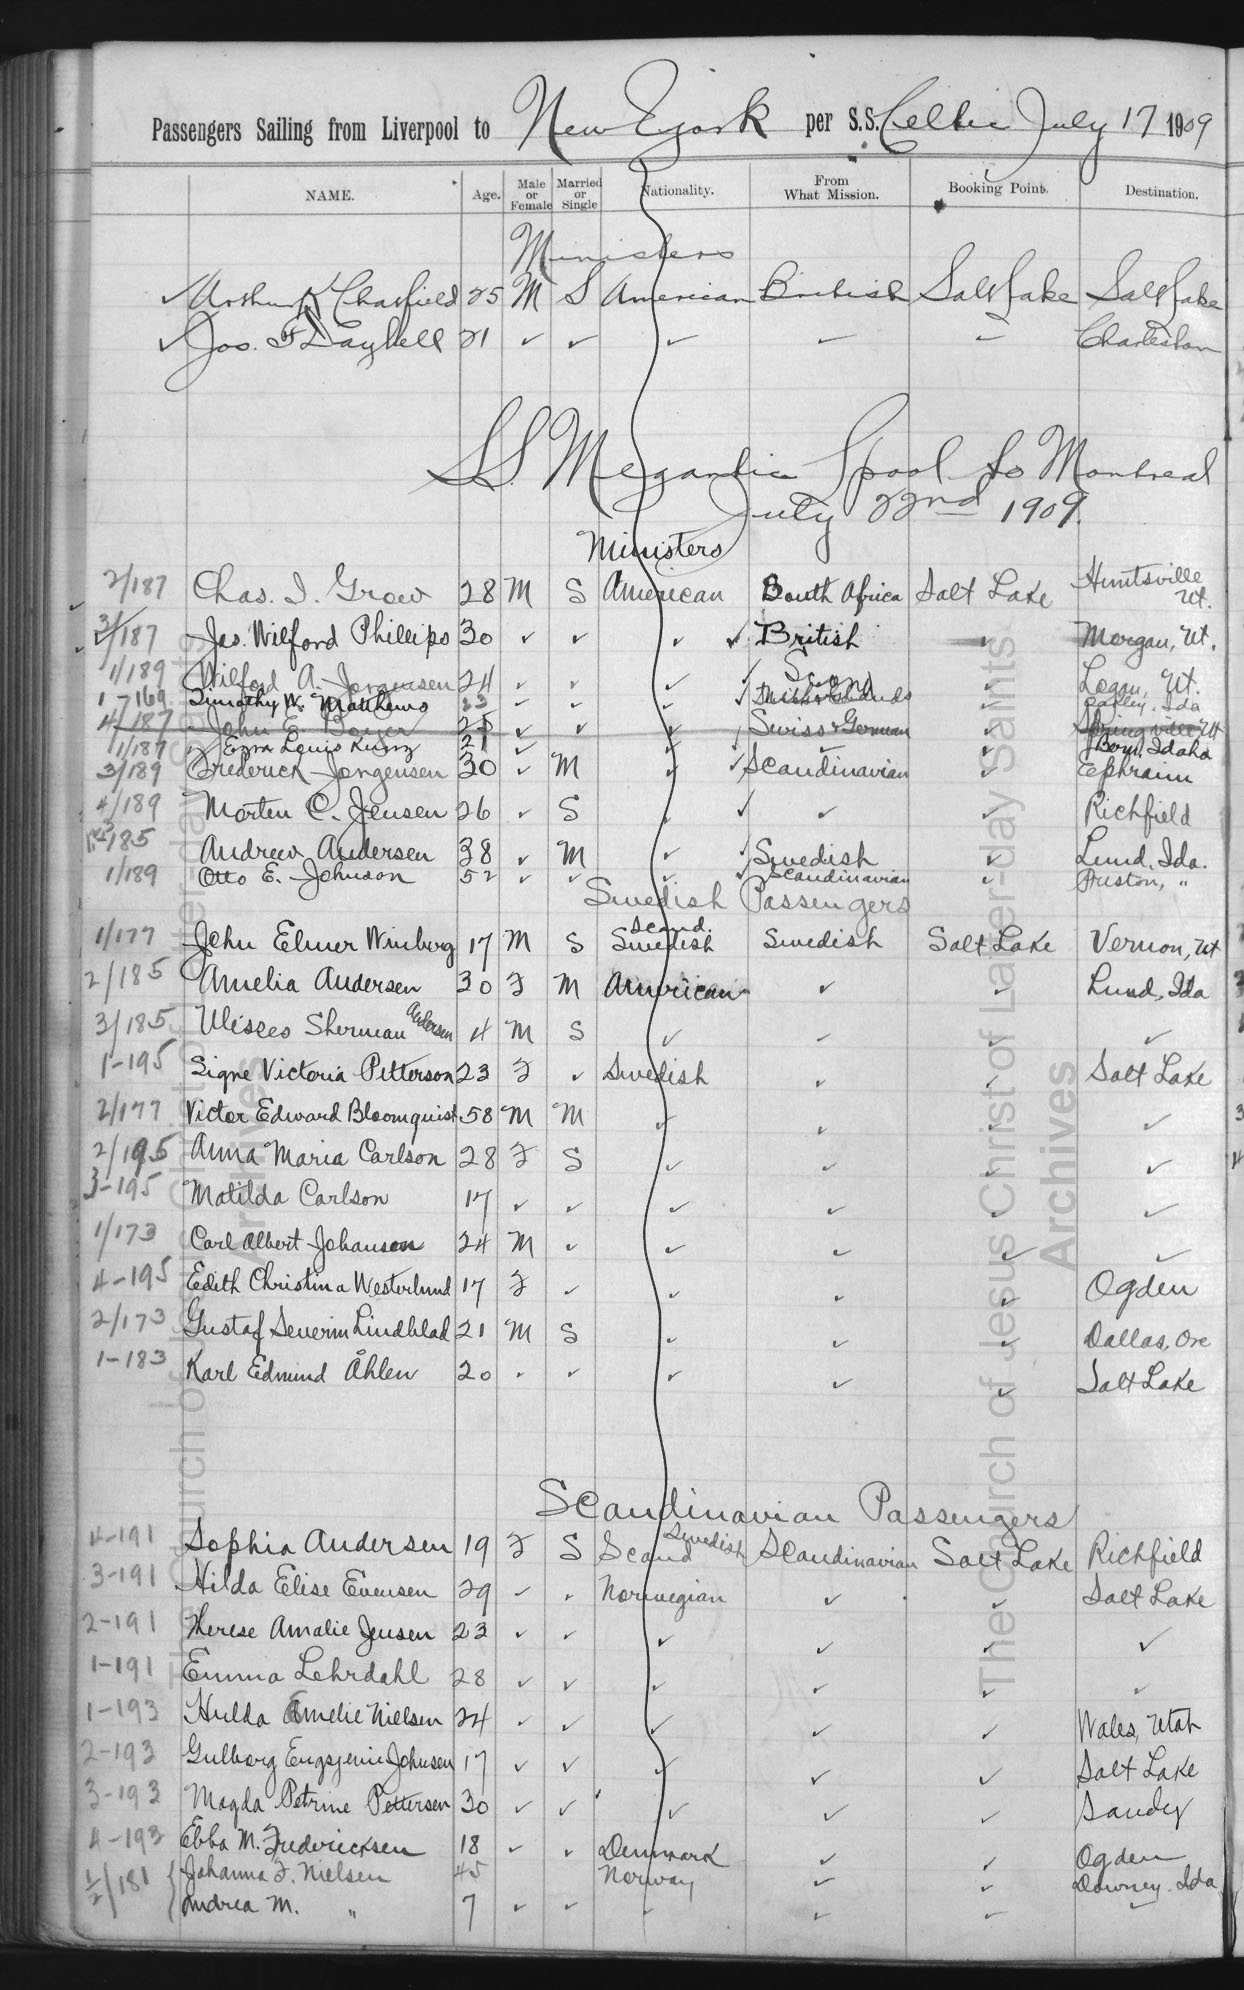 Passengers Sailing from Liverpool to New York per S.S. Celtic July 17 1909
NAME. Age. Male or Female Married or Single Nationality. From What Mission. Booking Point. Destination.
Ministers
✓ Arthur Chatfield 25 M S American British Salt Lake Salt Lake
✓ Jos. F Daybell 21 ✓ ✓ ✓ ✓ ✓ Charleston
SS Megantic Lpool to Montreal
July 22nd 1909.
Ministers
2/187 Chas. I. Grow 28 M S American South Africa Salt Lake Huntsville Ut.
/187 Jas. Wilford Phillips 30 ✓ ✓ ✓ ✓ British ✓ Morgan, Ut.
1/189 Wilford A. Jorgensen 24 ✓ ✓ ✓ ✓ Scand ✓ Logan, Ut.
1-169 Timothy W. Matthews 23 ✓ ✓ ✓ ✓ Netherlands ✓ Oakley, Ida
4/187 John E. Boyer 25 ✓ ✓ ✓ Swiss & German ✓ Springville Ut
1/187 Ezra Louis Kunz 21 ✓ ✓ ✓ Bern, Idaho
3/189 Frederick Jorgensen 30 ✓ M ✓ ✓ Scandinavian ✓ Ephraim
4/189 Morten C. Jensen 26 ✓ S ✓ ✓ ✓ ✓ Richfield
185 Andrew Andersen 38 ✓ M ✓ ✓ Swedish ✓ Lund, Ida.
1/189 Otto E. Johnson 52 ✓ ✓ ✓ ✓ Scandinavian ✓ Preston, "
Swedish Passengers
1/177 John Elmer Winberg 17 M S Scand. Swedish Swedish Salt Lake Vernon, Ut
2/185 Amelia Andersen 30 F M American ✓ ✓ Lund, Ida
3/185 Ulisses Sherman Andersen 4 M S ✓ ✓ ✓ ✓
1-195 Signe Victoria Petterson 23 F ✓ Swedish ✓ ✓ Salt Lake
2/177 Victor Edward Bloomquist 58 M M ✓ ✓ ✓ ✓
2/195 Anna Maria Carlson 28 F S ✓ ✓ ✓ ✓
3-195 Matilda Carlson 17 ✓ ✓ ✓ ✓ ✓ ✓
1/173 Carl Albert Johanson 24 M ✓ ✓ ✓ ✓ ✓
4-195 Edith Christina Westerlund 17 F ✓ ✓ ✓ ✓ Ogden
2/173 Gustaf Severin Lindblad 21 M S ✓ ✓ ✓ Dallas, Ore
1-183 Karl Edmund Åhlen 20 ✓ ✓ ✓ ✓ ✓ Salt Lake
Scandinavian Passengers
4-191 Sophia Andersen 19 F S Scand Swedish Scandinavian Salt Lake Richfield
3-191 Hilda Elise Evensen 29 ✓ ✓ Norwegian ✓ ✓ Salt Lake
2-191 Therese Amalie Jensen 23 ✓ ✓ ✓ ✓ ✓ ✓
1-191 Emma Lehrdahl 28 ✓ ✓ ✓ ✓ ✓ ✓
1-193 Hulda Amelie Nielsen 24 ✓ ✓ ✓ ✓ ✓ Wales, Utah
2-193 Gulborg Johnsen 17 ✓ ✓ ✓ ✓ ✓ Salt Lake
3-193 Magda Petrine Pettersen 30 ✓ ✓ ✓ ✓ ✓ Sandy
4-193 Ebba M. Fredericksen 18 ✓ ✓ Denmark ✓ ✓ Ogden
1/2/181 Johanna F. Nielsen 45 Norway ✓ ✓ Downey, Ida
Andrea M. " 7 ✓ ✓ ✓ ✓ ✓ ✓
The Church of Jesus Christ of Latter-day Saints
Archives
The Church of Jesus Christ of Latter-day Saints
Archives